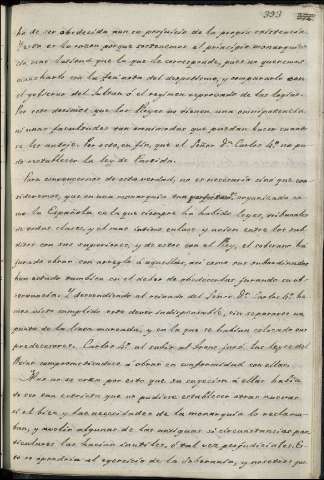 393
ha de ser obedecida aun en perjuicio de la propia existencia.
Pero en la razon porque sostenemos el principio monarquico
que la que le corresponde, pues no queremos
con la fea nota del despotismo, y compararlo con
el gobierno del Sultan ó el regimen reprovado de las
Por esto decimos que los Reyes no tienen una omnipotencia,
ni unas facultades tan omnimodas que puedan hacer cuanto
se les antoje. Por esto, en fin, que el Señor Dn. Carlos 4º no pu-
do restablecer la ley de Partida.
Para convencernos de esta verdad, no es necesario sino que con-
sideremos, que en una monarquia tan perfectamte. organizada co-
mo la Española, en la que siempre ha habido leyes, tribunales
de todas clases, y el mas intimo enlace y union entre los sub-
ditos con sus superiores, y de estos con el Rey, el soberano ha
jurado obrar con arreglo á aquellas, asi como sus subordinados
han estado tambien en el deber de obedecerlas jurando su ob-
servancia. Y descendiendo al reinado del Señor Dn. Carlos 4º he-
mos visto cumplido este deber indispensable, sin separarse un
punto de la linea marcada, y en la que se habian colocado sus
predecesores. Carlos 4º al subir al trono juró las leyes del
Reino comprometiendose á obrar en conformidad con ellas.
Mas no se crea por esto que su sujecion á ellas habia
de ser tan estricta que no pudiese establecer otras nuevas
si el bien y las necesidades de la monarquia lo reclama-
ban, y abolir algunas de las antiguas si circunstancias par-
ticulares las hacian inutiles, ó tal vez perjudiciales. Es-
to se oponia al ejercicio de la soberania, y nosotros que